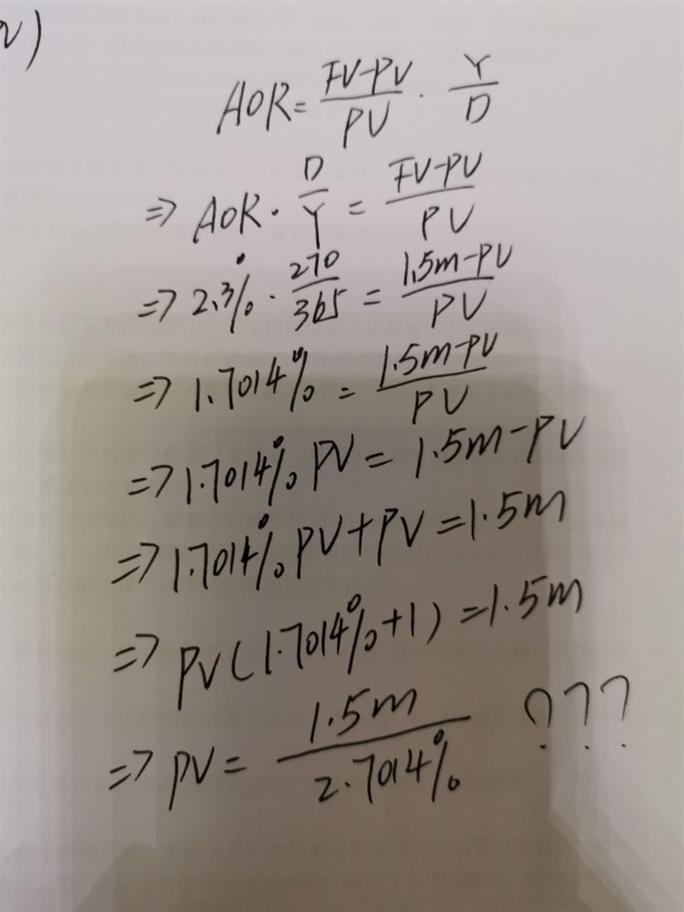 2)
AOR = FV-PV/PV · Y/D
⇒ AOR · D/Y = FV-PV/PV
⇒ 2.3% · 270/365 = 1.5m-PV/PV
⇒ 1.7014% = 1.5m-PV/PV
⇒ 1.7014% PV = 1.5m-PV
⇒ 1.7014% PV+PV = 1.5m
⇒ PV(1.7014%+1) = 1.5m
⇒ PV = 1.5m/2.7014% ???